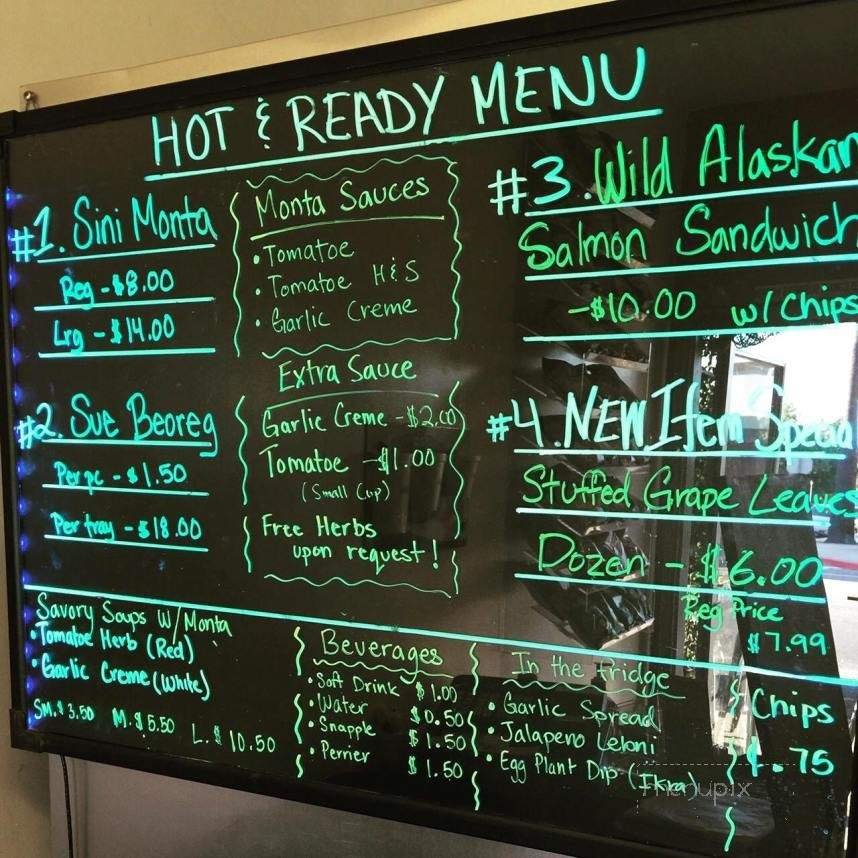 HOT & READY MENU
#1. Sini Monta
Reg - $8.00
Lrg - $14.00
#2. Sue Beoreg
Per pc - $1.50
Per tray - $18.00
Monta Sauces
• Tomatoe
• Tomatoe H & S
• Garlic Creme
Extra Sauce
Garlic Creme - $2.00
Tomatoe - $1.00
(Small Cup)
Free Herbs
upon request!
#3. Wild Alaskan
Salmon Sandwich
- $10.00 w/ Chips
#4. NEW Item "Specia
Stuffed Grape Leaves
Dozen - $6.00
Reg Price
$7.99
Savory Soups W/ Monta
• Tomatoe Herb (Red)
• Garlic Creme (White)
Sm. $3.50 M. $5.50 L. $10.50
Beverages
• Soft Drink $1.00
• Water $0.50
• Snapple $1.50
• Perrier $1.50
In the fridge
• Garlic Spread
• Jalapeno Leloni
• Egg Plant Dip (Ikra)
Chips
$.75
menupix